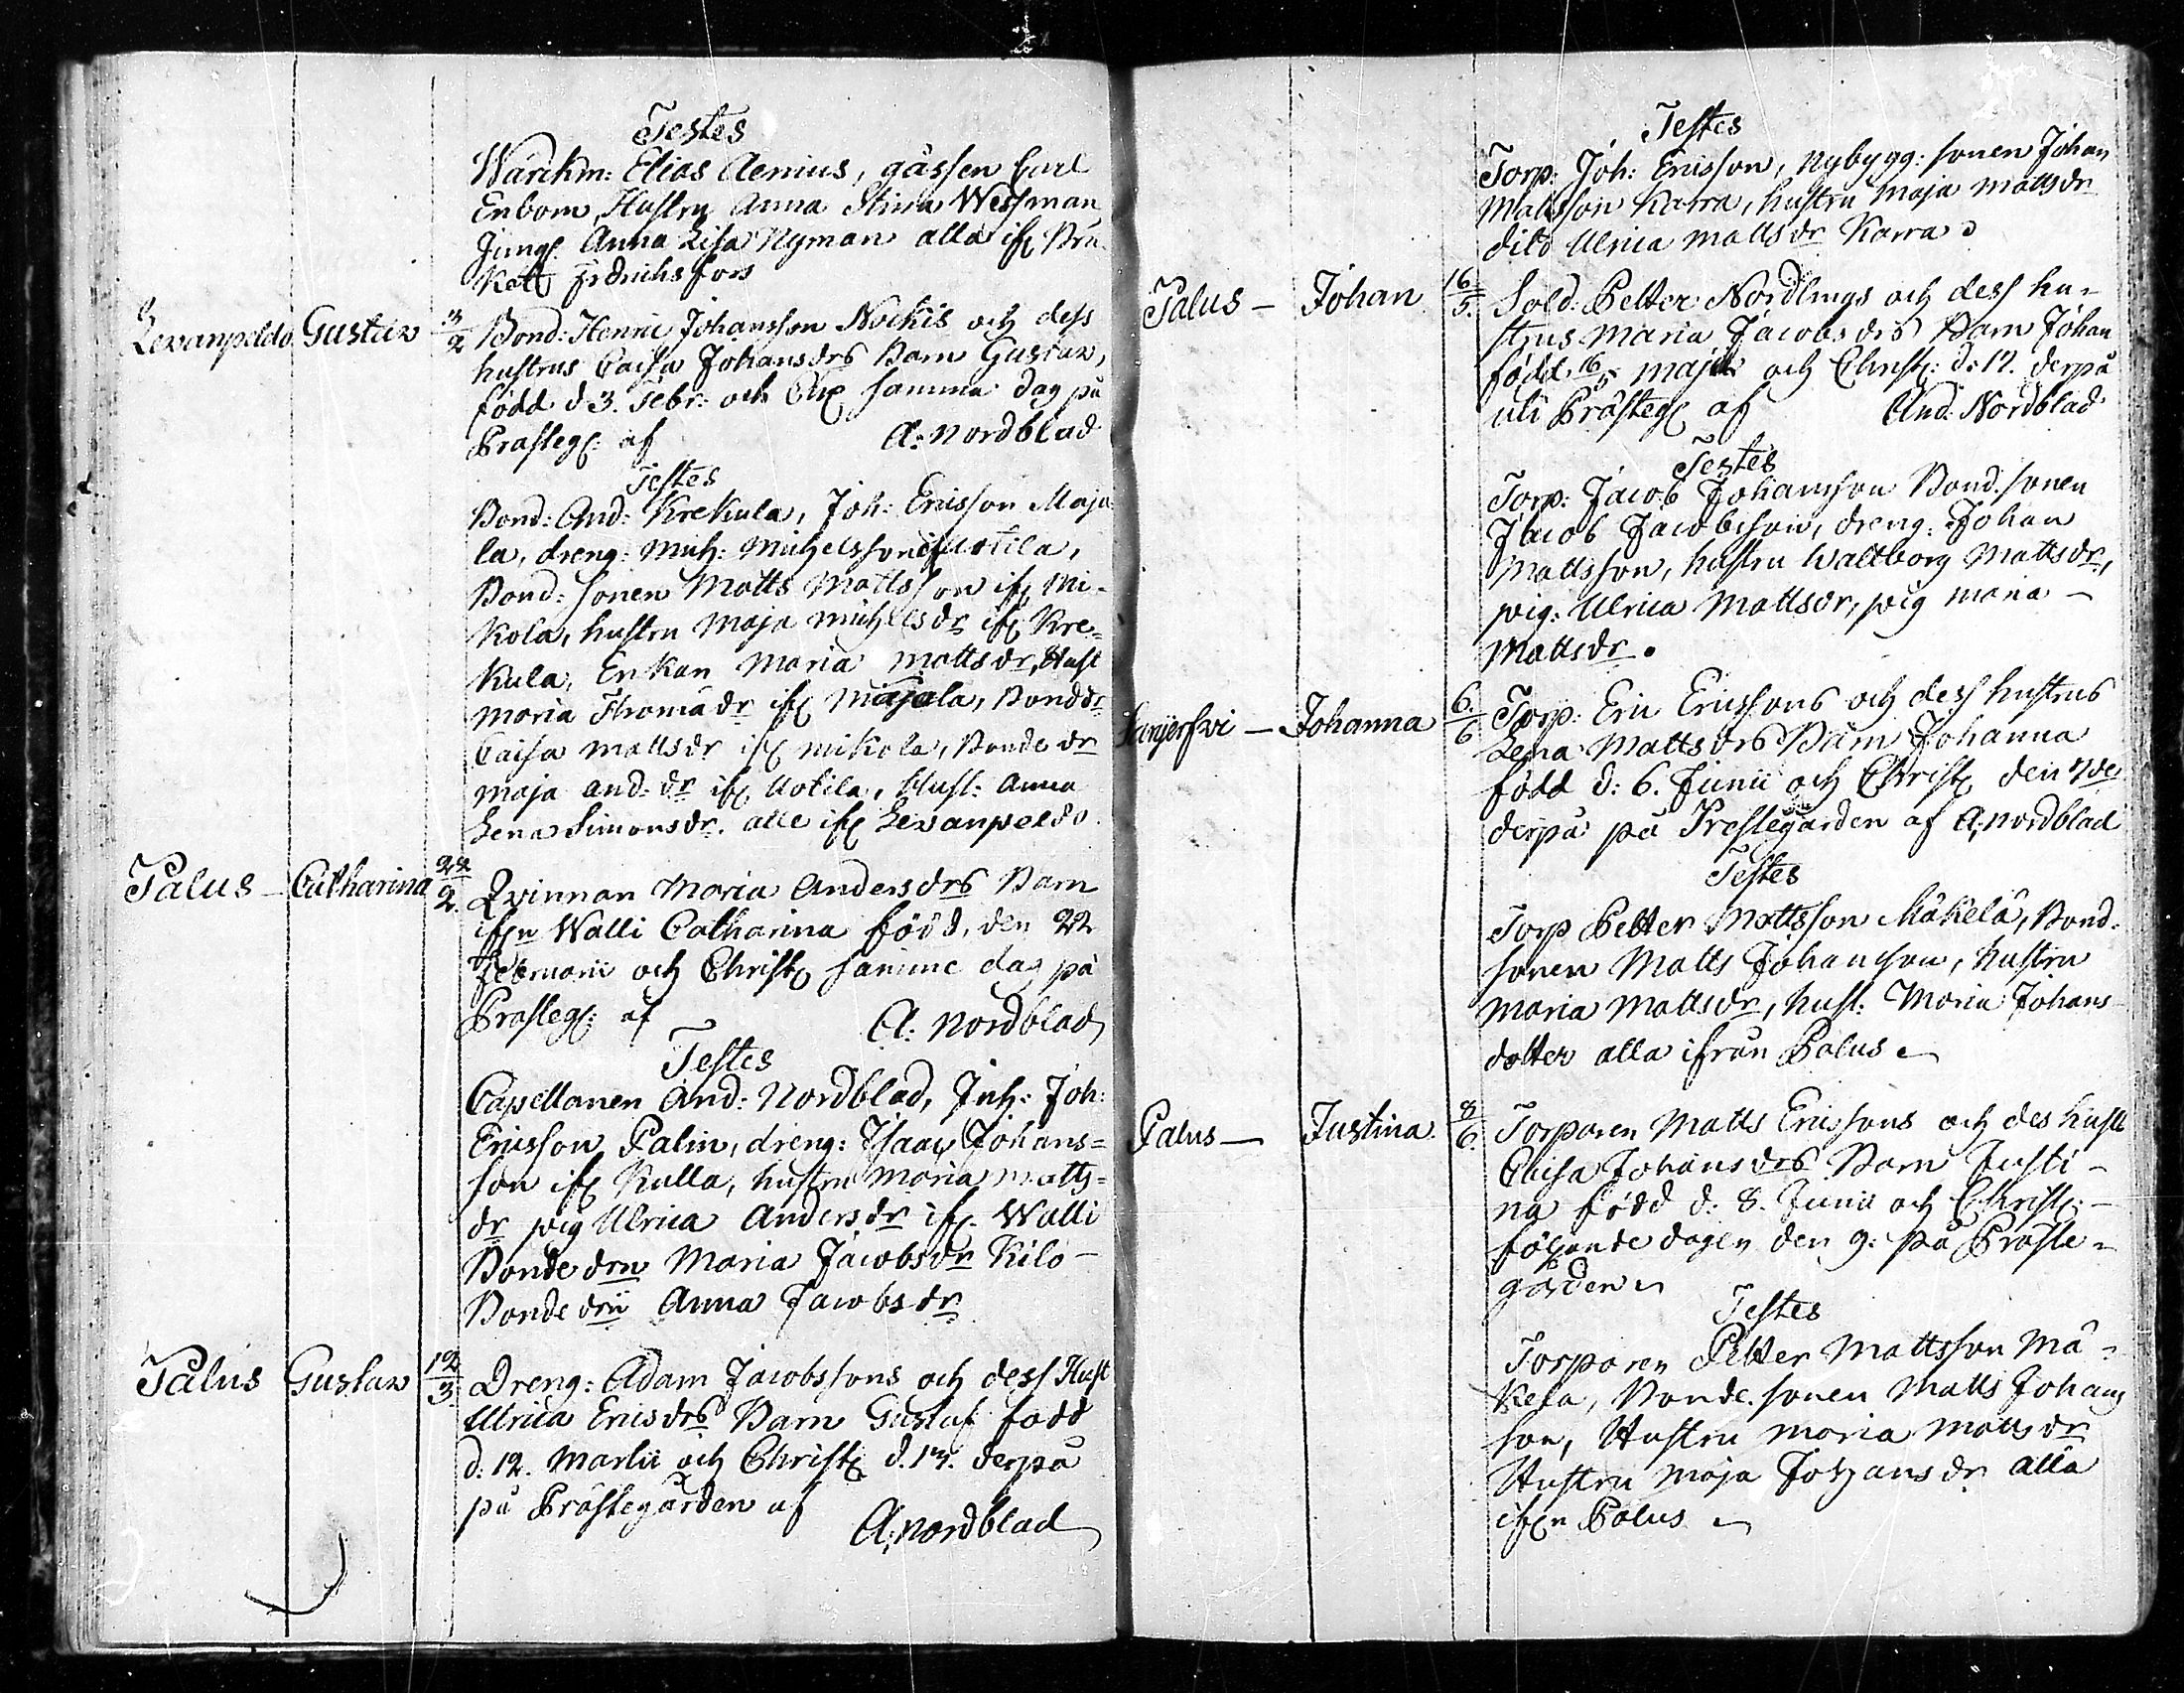 Testes
Wärckm: Elias Alenius, gässen Carl
Enbom, Hustru Anna Stina Wessman
Jungf. Anna Lisa Nyman alla ifr. Bru
ket Fredrichsfors
Levanpeldo Gustav 3/2 Bond: Henric Johansson Nockis och dess
hustrus Caisa Johansdrs Barn Gustav,
född d 3. Febr: och Chr samma dag på
Prasteg: af A: Nordblad
Testes
Bond: And: Krekula, Joh: Ericsson Maja
la, dreng: Mich: Michelsson ifr Uotila,
Bond: sonen Matts Mattsson ifr Mi-
kola, hustru Maja Michelsdr ifr Kre=
kula, Enkan Maria Mattsdr, Hust
Maria Thomadr ifr Majala, Bondedr
Caisa Mattsdr ifr Mikola, Bondedr
Maja And: dr ifr Uotila, Hust: Anna
Lena Simonsdr. alle ifr Levanpeldo.
Palus - Catharina 22/2. Qvinnan Maria Andersdrs Barn
ifrn Walli Catharina född, den 22
Februarii och Christ samme dag på
Prasteg: af A: Nordblad
Testes
Capellanen And: Nordblad, Inh: Joh:
Ericsson Palin, dreng: Isaac Johans=
son ifr Kulla, hustru Maria Matts=
dr pig Ulrica Andersdr ifr. Walli
Bondedrn Maria Jacobsdr Kilo -
Bondedrn Anna Jacobsdr
Palus Gustav 12/3. Dreng: Adam Jacobssons och dess Hust
Ulrica Ericsdrs Barn Gustaf född
d: 12. Martii och Christ d. 13. derpå
på Prästegården af
A: Nordblad
Testes
Torp: Joh: Ericsson, Nybygg: sonen Johan
Mattsson Karra, hustru Maja Mattsdr
dito Ulrica Mattsdr Karra
Palus - Johan 16/5. Sold: Petter Nordlings och dess hu-
strus Maria Jacobsdrs Barn Johan
född 16/5 Maji och Christ: d: 17. derpå
uti Prästeg af And: Nordblad
Testes
Torp: Jacob Johansson Bond. sonen
Jacob Jacobsson, dreng: Johan
Mattsson, hustru Waltborg Mattsdr,
pig: Ulrica Mattsdr, pig Maria -
Mattsdr.
- Johanna 6./6 Torp: Eric Ericssons och dess hustrus
Lena Mattsdrs Barn Johanna
född d: 6. Junii och Christ den 7de
derpå på Prestegården af A: Nordblad
Testes
Torp Petter Mattsson Mäkelä, Bond.
sonen Matts Johansson, hustru
Maria Mattsdr, hust: Maria Johans-
dotter alla ifrån Palus
Palus - Justina. 8/6. Torparen Matts Ericssons och des hust
Caisa Johansdrs Barn Justi-
na född d: 8. Junii och Christ: -
följande dagen den 9: på Präste-
gården
Testes
Torparen Petter Mattsson Mä-
kela, Bonde. sonen Matts Johans
son, Hustru Maria Mattsdr
Hustru Maja Johansdr alla
ifrn Palus